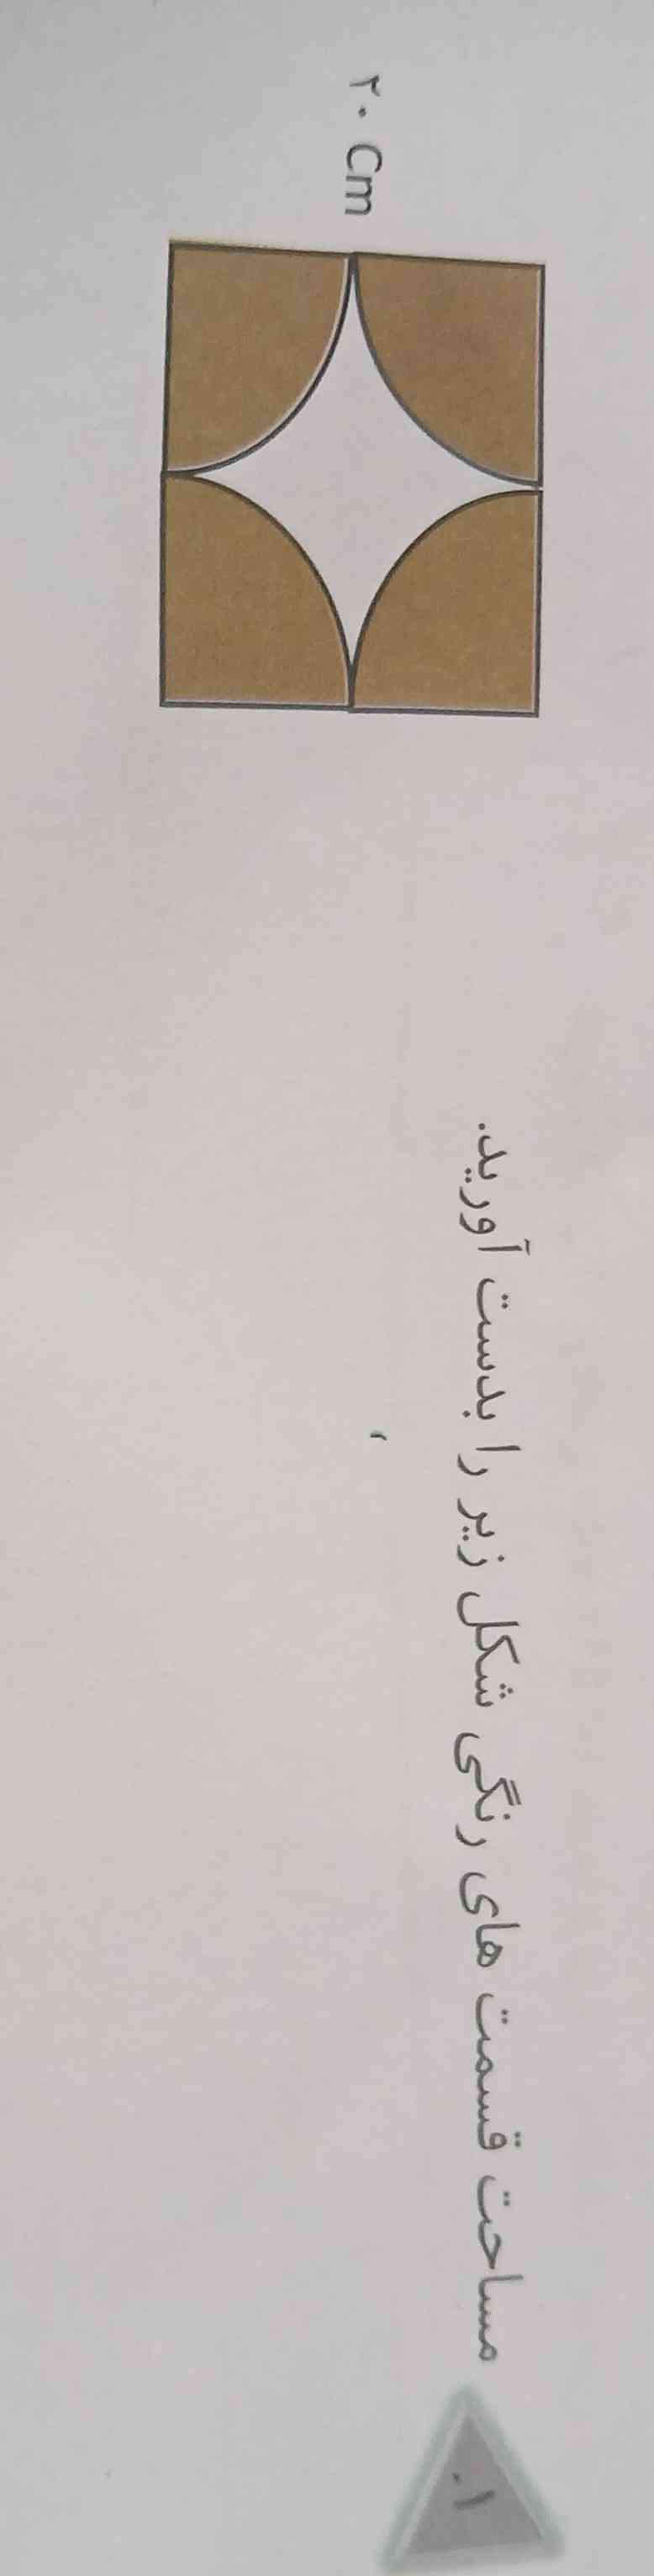 ۱۰
مساحت قسمت های رنگی شکل زیر را بدست آورید.
۲۰ Cm